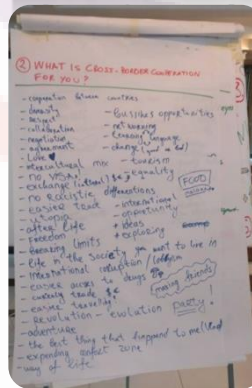 ② WHAT IS CROSS-BORDER COOPERATION
FOR YOU?
- cooperation between countries
- diversity
- respect
- collaboration
- negotiation
- agreement
- Love ♥
- intercultural mix
- no VISA!
- exchange
- no racistic
- easier trade
- utopia
- after life
- freedom
- breaking limits
- life in the society you want to live in
- international corruption /
- easier access to drugs
- currency trade
- easier
- revolution - evolution
- adventure
- the best thing that happend to me
- expanding comfort zone
- way of life
- Bussines opportunities
- networking
- Learning language
- change (good or bad)
- tourism
- equality
FOOD
- international
opportunity
- ideas
- exploring
making friends
PARTY!